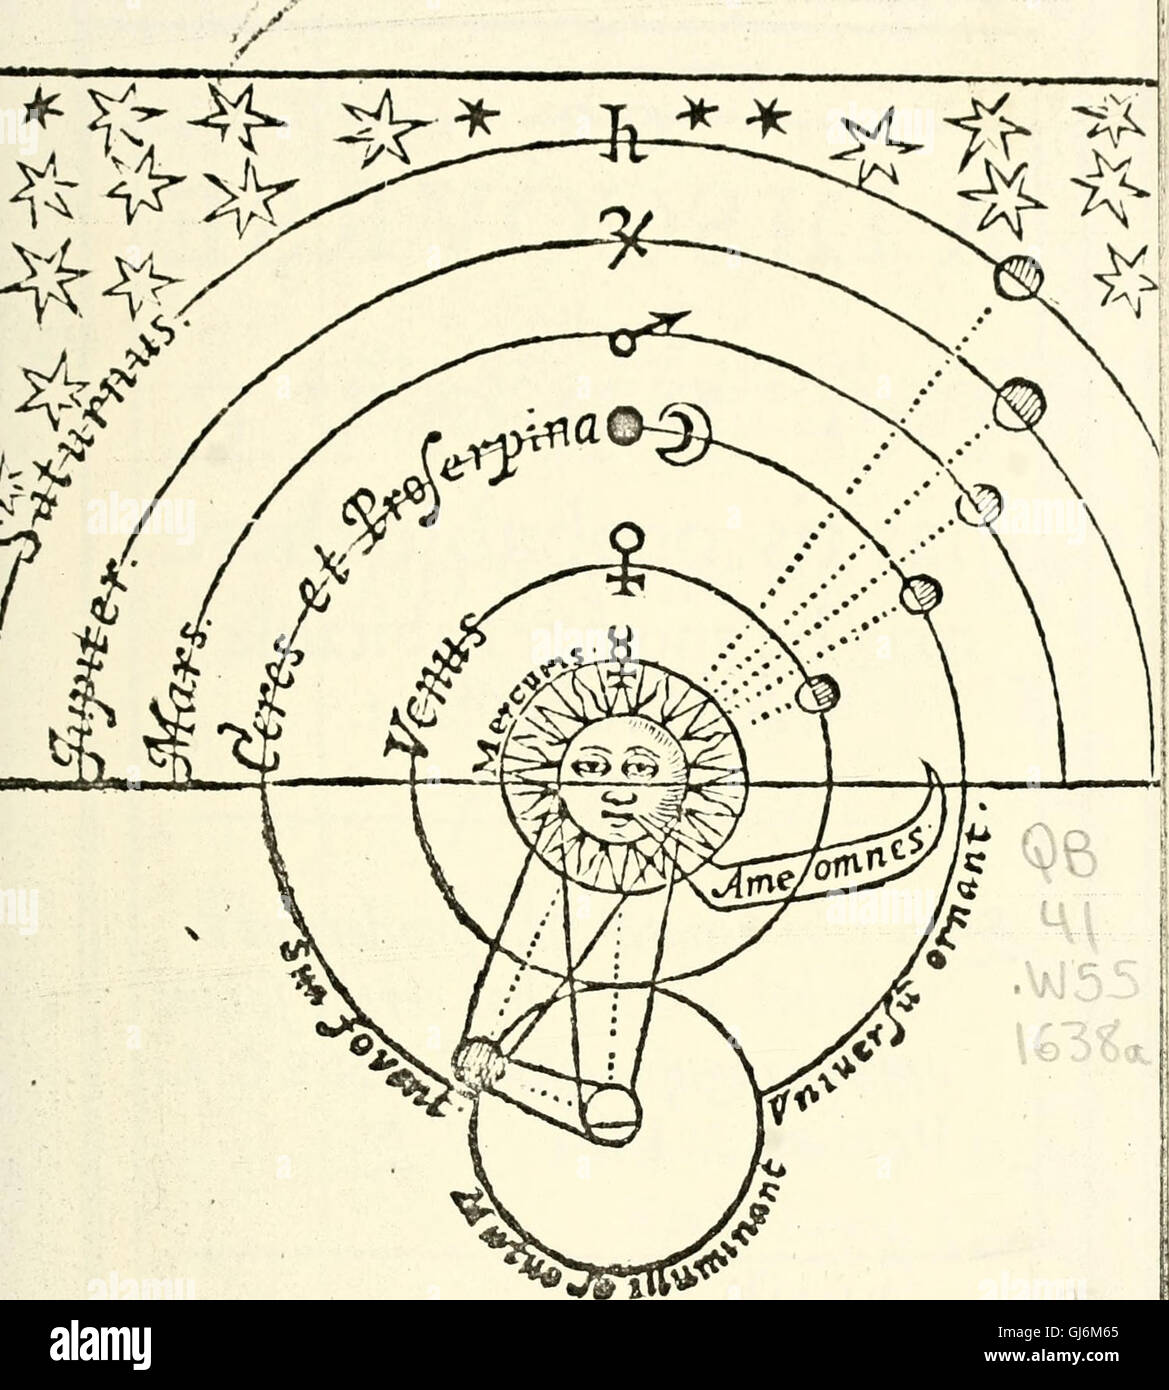 Saturnus.
Iupiter.
Mars.
Ceres et Proserpina
Venus
Mercurius.
Ame omnes.
Sua fovent.
Vniuersū ornant.
Mutuo se illuminant
QB
41
.W55
1638a
alamy
Image ID: GJ6M65
www.alamy.com